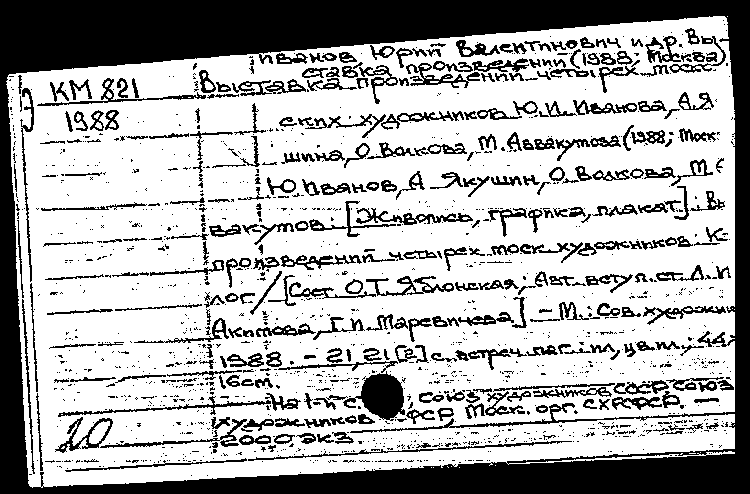 Иванов, Юрий Валентинович и др. Вы-
ставка произведений (1988; Москва)
КМ 821 Выставка произведений четырех моск.
1988 ских художников Ю.И. Иванова, А.Я
шина, О. Волкова, М. Аввакумова (1988; Моск
Ю. Иванов, А. Якушин, О. Волкова, М.
вакумов: [Живопись, графика, плакат]: Вы
произведений четырех моск. художников: К-
лог / [Сост. О.Т. Яблонская; Авт. вступ. ст. Л.И
Акимова, Г.И. Маревичева]. — М.: Сов. художни
1988. — 21, 21 [2] с. встреч. паг.: ил., цв. ил.; 44
16 cm.
На 1-й с , Союз художников СССР Союз
художников ФСР, Моск. орг. СХРСФСР. —
20 2000 экз.